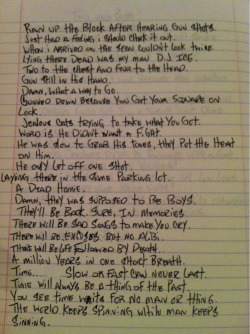 Ran up the Block After Hearing Gun Shots.
Just Had a Feeling I Should Check it out.
When I Arrived on the Seen Couldn't Look twice.
Lying there Dead was my man D.J Ice.
Two to the Chest And Four to the Head.
Gun Still in His Hand.
Damn, What A Way to Go.
Gunned Down Because You Got Your Square on
Lock.
Jealous Cats trying to take what you Got.
Word is He Didn't Want A Fight.
He was Slow to Grab His Tones, they Put the Heat
on Him.
He only Let off one Shot.
Laying there in the Same Parking Lot.
A Dead Homie.
Damn, they was supposed to Be Boys.
They'll Be Back. Sure, In Memories
There will Be Sad Songs to make you Cry.
There will Be, Excuses But no
There will Be Life Followed By Death.
A million Years in one Short Breath.
Time.... Slow or Fast Can Never Last.
Time will Always Be a thing of the Past.
You See time waits for No man or thing.
The World Keeps Spinning while man Keeps
Sinning.